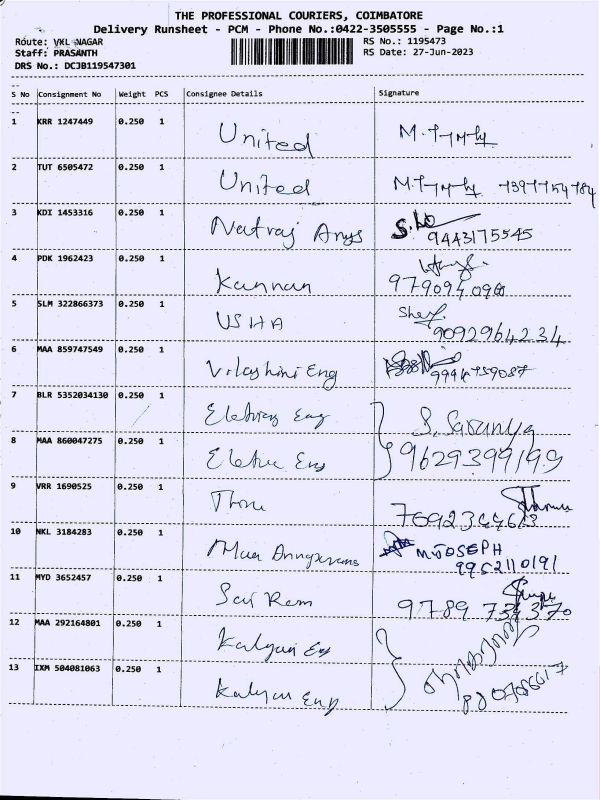 THE PROFESSIONAL COURIERS, COIMBATORE
Delivery Runsheet - PCM - Phone No.:0422-3505555 - Page No.:1
Route: VKL NAGAR RS No.: 1195473
Staff: PRASANTH RS Date: 27-Jun-2023
DRS No.: DCJB119547301
S No Consignment No Weight PCS Consignee Details Signature
1 KRR 1247449 0.250 1 United
2 TUT 6505472 0.250 1 United
3 KDI 1453316 0.250 1 Natraj
9443175545
4 PDK 1962423 0.250 1 Kannan
5 SLM 322866373 0.250 1 USHA
9092964234
6 MAA 859747549 0.250 1 Vilashini Eng
7 BLR 5352034130 0.250 1 S. Saranya
8 MAA 860047275 0.250 1 9629399199
9 VRR 1690525 0.250 1
10 NKL 3184283 0.250 1 M JOSEPH
9952110191
11 MYD 3652457 0.250 1 Sai Ram
12 MAA 292164801 0.250 1 Kalyan
13 IXM 504081063 0.250 1 Kalyan Eng